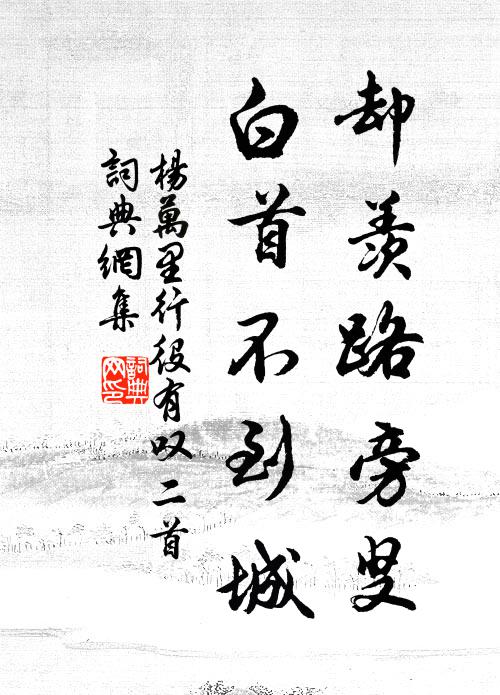 却羨路旁叟
白首不到城
楊萬里行役有叹二首
詞典網集
詞典网印